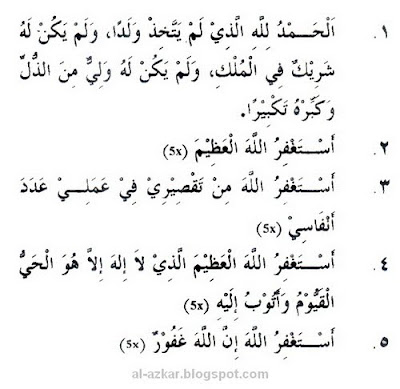 ١. اَلْحَمْدُ لِلَّهِ الَّذِيْ لَمْ يَتَّخِذْ وَلَدًا، وَلَمْ يَكُنْ لَهُ
شَرِيْكٌ فِي الْمُلْكِ، وَلَمْ يَكُنْ لَهُ وَلِيٌّ مِنَ الذُّلِّ
وَكَبِّرْهُ تَكْبِيْرًا.
٢. أَسْتَغْفِرُ اللَّهَ الْعَظِيْمَ (5x)
٣. أَسْتَغْفِرُ اللَّهَ مِنْ تَقْصِيْرِيْ فِيْ عَمَلِيْ عَدَدَ
أَنْفَاسِيْ (5x)
٤. أَسْتَغْفِرُ اللَّهَ الْعَظِيْمَ الَّذِيْ لاَ إِلهَ إِلاَّ هُوَ الْحَيُّ
الْقَيُّوْمُ وَأَتُوْبُ إِلَيْهِ (5x)
٥. أَسْتَغْفِرُ اللَّهَ إِنَّ اللَّهَ غَفُوْرٌ (5x)
al-azkar.blogspot.com